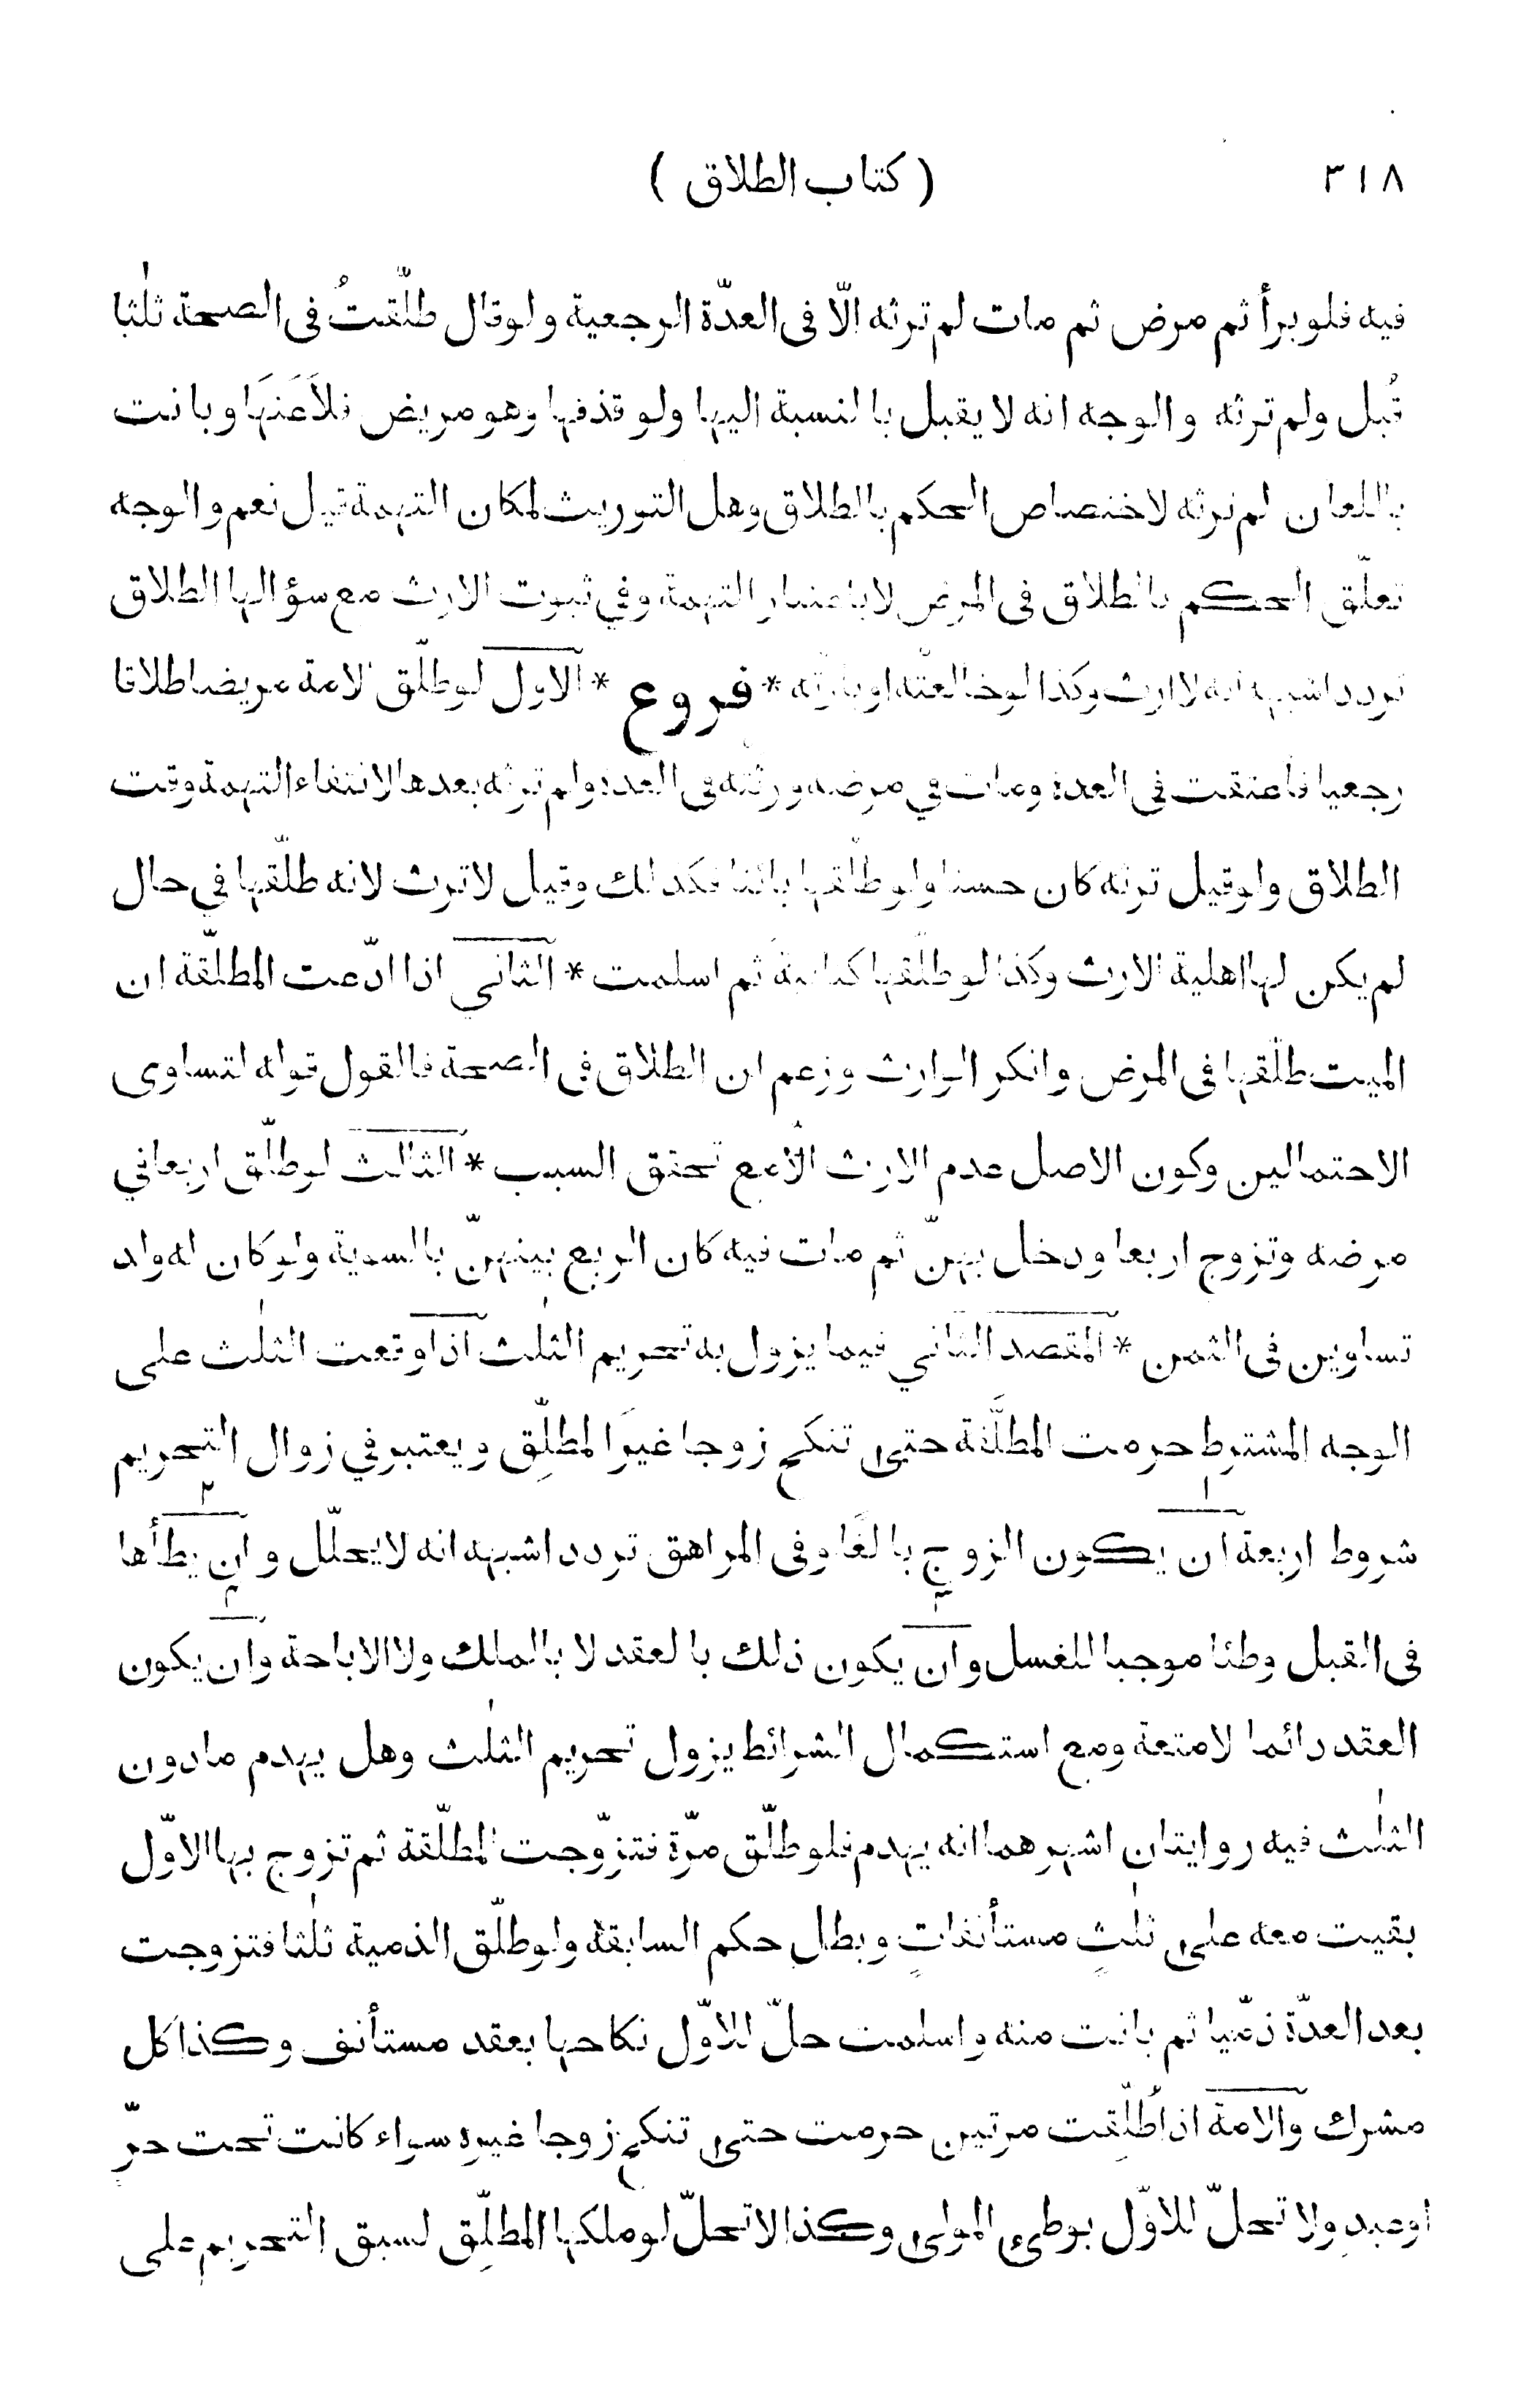 ٣١٨ ( كتاب الطلاق )
فيه فلو برأ ثم مرض ثم مات لم ترثه الّا فى العدّة الرجعية ولو قال طلّقتُ فى الصحة ثلٰثا
قُبل ولم ترثه والوجه انه لا يقبل بالنسبة اليها ولو قذفها وهو مريض فلاَعَنَها وبانت
باللعان لم ترثه لاختصاص الحكم بالطلاق وهل التوريث لمكان التهمة قيل نعم والوجه
تعلّق الحكم بالطلاق فى المرض لا باعتبار التهمة وفي ثبوت الارث مع سؤالها الطلاق
تردد اشبهه انه لا ارث وكذا لو خالعته او بارئته * فروع * الاول لو طلّق الامة مريضا طلاقا
رجعيا فاعتقت فى العدة ومات في مرضه ورثته فى العدة ولم ترثه بعدها لانتفاء التهمة وقت
الطلاق ولو قيل ترثه كان حسنا ولو طلّقها بائنا فكذلك وقيل لا ترث لانه طلّقها في حال
لم يكن لها اهلية الارث وكذا لو طلّقها كتابية ثم اسلمت * الثاني اذا ادّعت المطلّقة ان
الميت طلّقها فى المرض وانكر الوارث وزعم ان الطلاق فى الصحة فالقول قوله لتساوى
الاحتمالين وكون الاصل عدم الارث الّا مع تحقق السبب * الثالث لو طلّق اربعا في
مرضه وتزوج اربعا ودخل بهنّ ثم مات فيه كان الربع بينهنّ بالسوية ولو كان له ولد
تساوين فى الثمن * المقصد الثاني فيما يزول به تحريم الثلٰث اذا وقعت الثلٰث على
الوجه المشترط حرمت المطلَّقة حتى تنكح زوجا غيرَ المطلِّق ويعتبر في زوال التحريم
شروط اربعة ١ ان يكون الزوج بالغًا وفى المراهق تردد اشبهه انه لا يحلّل ٢ وان يطأها
فى القبل وطئا موجبا للغسل ٣ وان يكون ذلك بالعقد لا بالملك ولا الاباحة ٤ وان يكون
العقد دائما لا متعة ومع استكمال الشرائط يزول تحريم الثلٰث وهل يهدم ما دون
الثلٰث فيه روايتان اشهرهما انه يهدم فلو طلّق مرّة فتزوّجت المطلّقة ثم تزوج بها الاوّل
بقيت معه على ثلٰثٍ مستأنفاتٍ وبطل حكم السابقة ولو طلّق الذمية ثلٰثا فتزوجت
بعد العدّة ذمّيا ثم بانت منه واسلمت حلّ للاوّل نكاحها بعقد مستأنف وكذا كل
مشرك والامة اذا طُلّقت مرتين حرمت حتى تنكح زوجا غيره سواء كانت تحت حرّ
او عبدٍ ولا تحلّ للاوّل بوطىء المولى وكذا لا تحلّ لو ملكها المطلِّق لسبق التحريم على